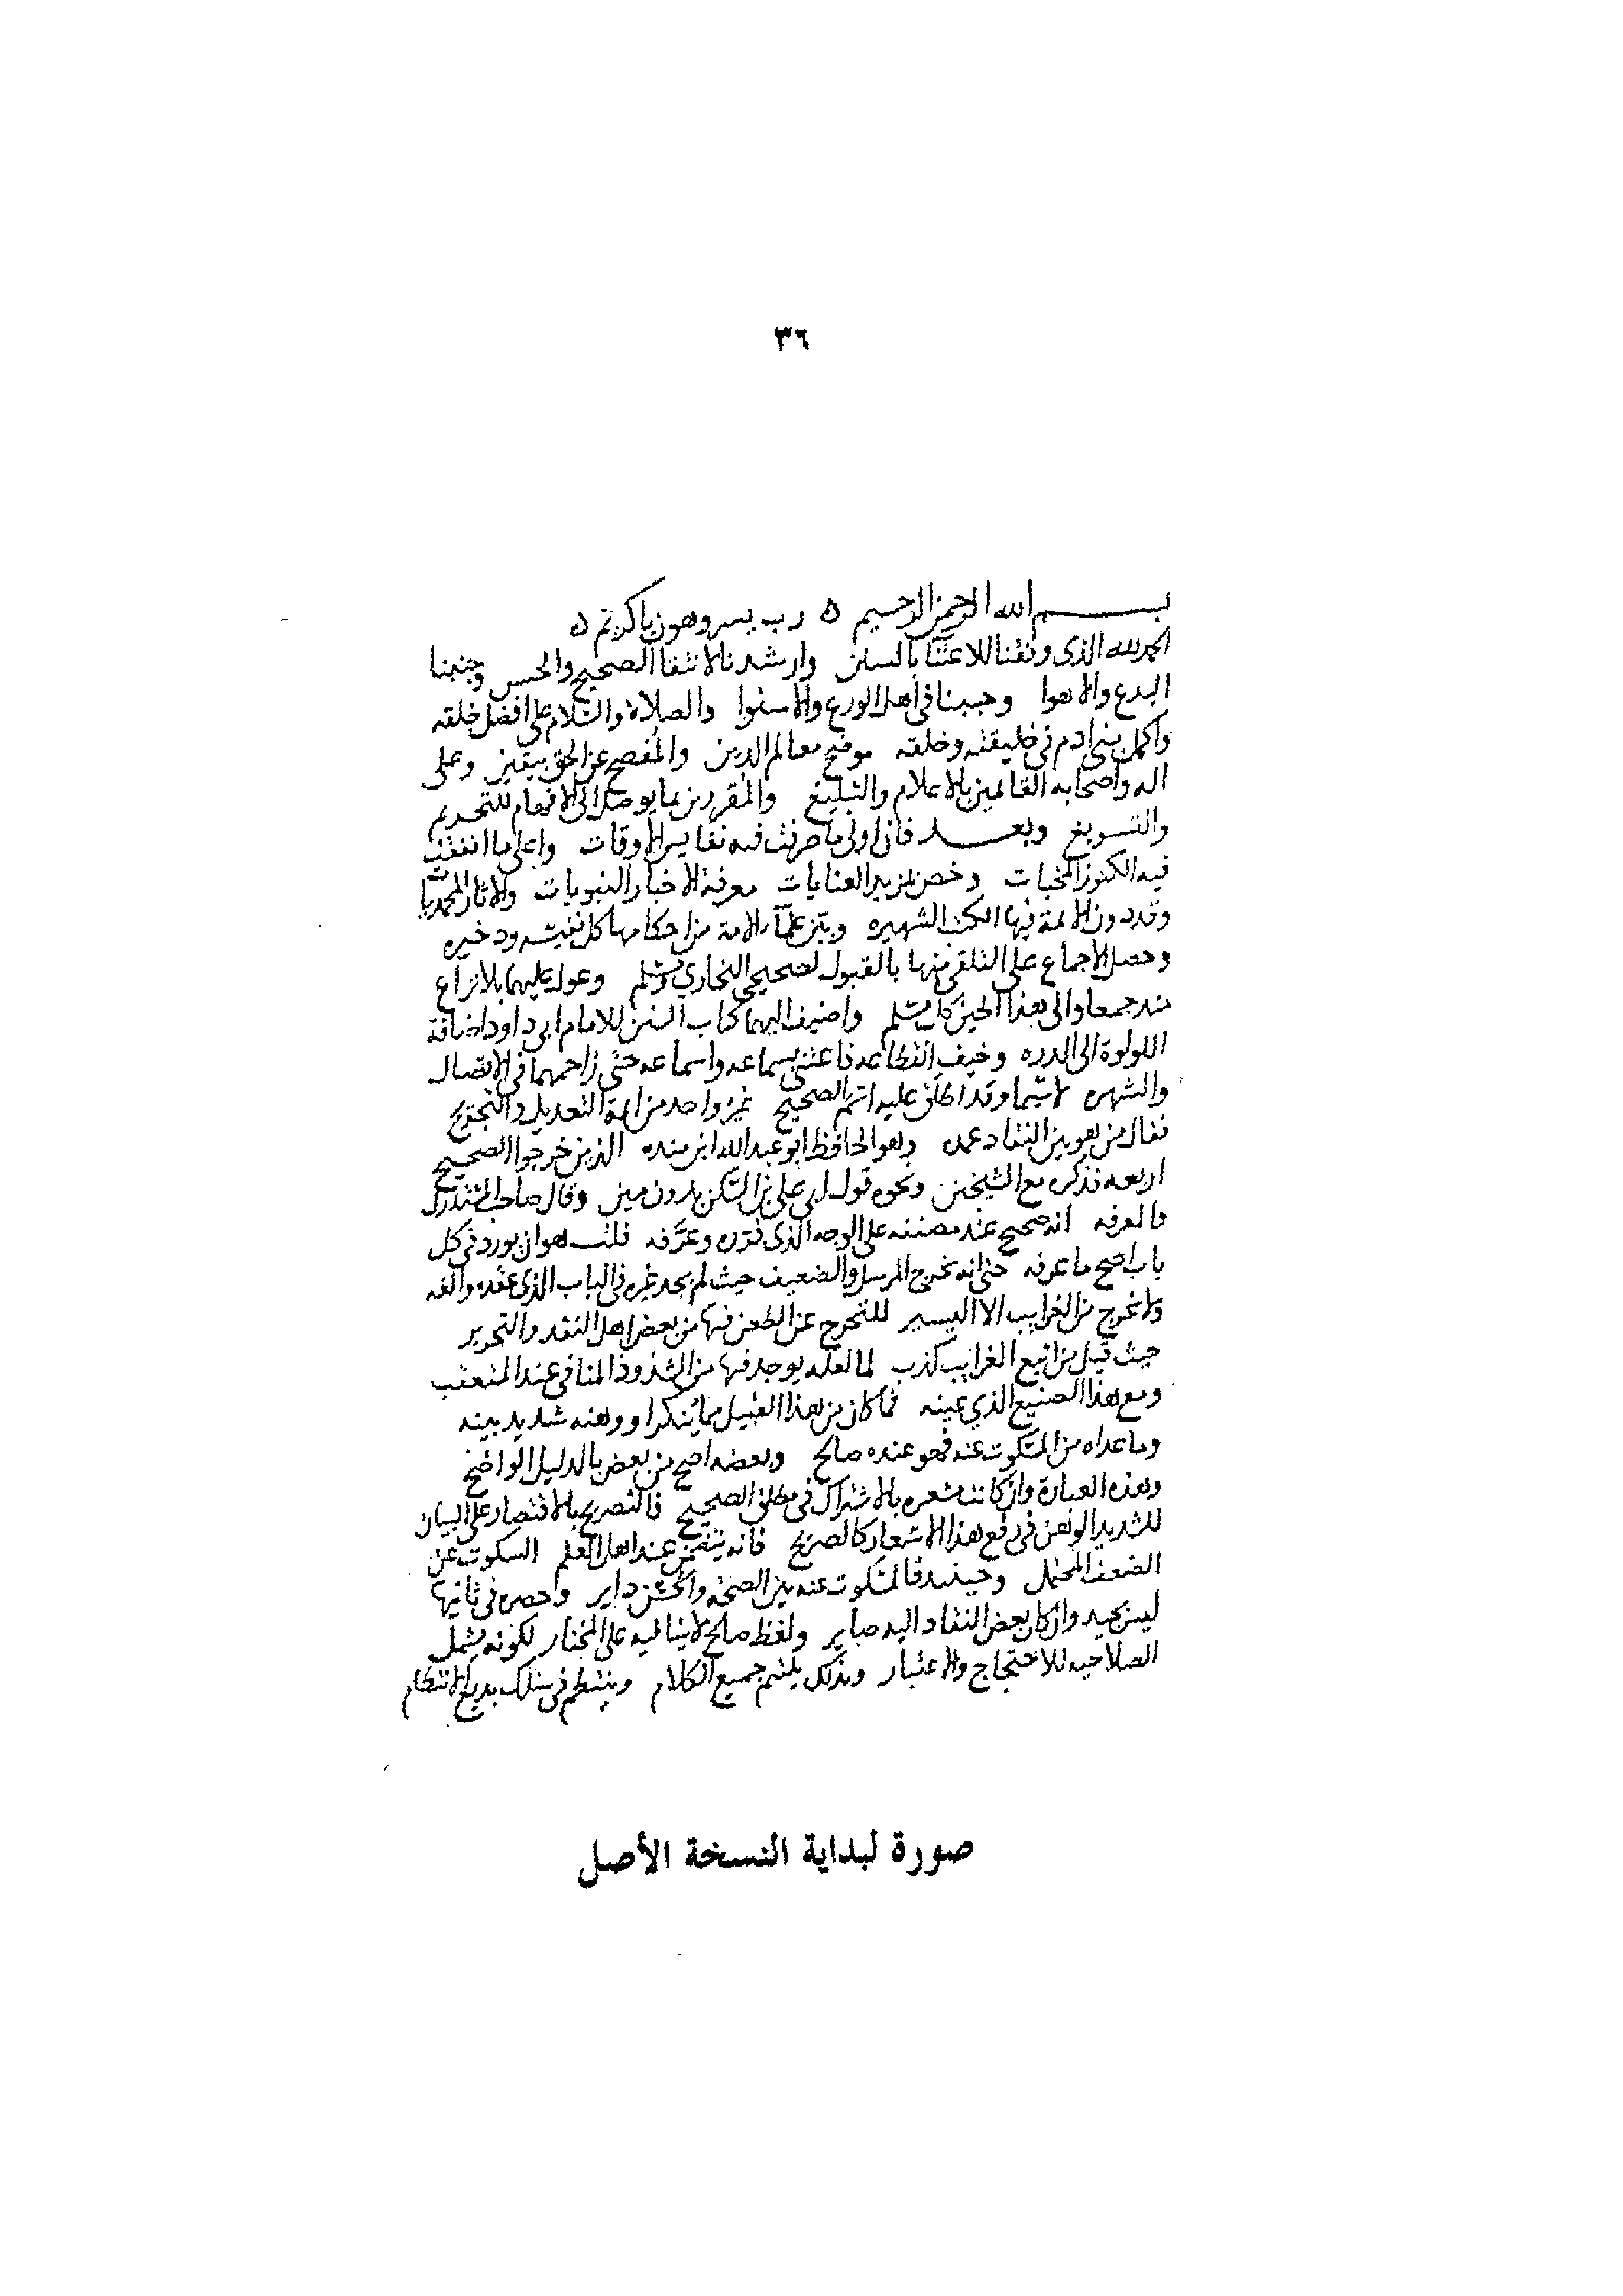 ٣٦
بسم الله الرحمن الرحيم ٥ رب يسر وهون يا كريم ٥
الحمد لله الذى وفقنا للاعتنا بالسنن وارشدنا لاقتفا الصحيح والحسن وجنبنا
البدع والاهوا وحببنا فى اهل الورع والاستوا والصلاة والسلام على افضل خلقه
واكمل بنى ادم فى خليقته وخلقه موضح معالم الدين والمفصح عن الحق بيقين وعلى
اله واصحابه القائمين بالاعلام والتبليغ والمقررين بما يوصل الى الافهام للتحريم
والتسويغ وبعد فان اولى ما صرفت فيه نفايس الاوقات واعلى ما انفقت
فيه الكنوز المخبات وخص بمزيد العنايات معرفة الاخبار النبويات والاثار المحمديات
وقد دون الائمة فيها الكتب الشهيره وبين علماء الامة من احكامها كل نفيسه ودخيره
وحصل الاجماع على التلقى منها بالقبول لصحيحي البخاري ومسلم وعول عليهما بلا نزاع
منه جمعا والى هذا الحين كل مسلم واضيف اليهما كتاب السنن للامام ابى داود اضافة
اللولوة الى الدره وخيف انقطاعه فاعتنى بسماعه واسماعه حتى زاحمهما فى الاتصال
والشهره لا سيما وقد اطلق عليه اسم الصحيح غير واحد من ايمة التعديل والتجريح
فقال من هو بين النقاد عمده وهو الحافظ ابو عبد الله ابن منده الذين خرجوا الصحيح
اربعه فذكره مع الشيخين ونحوه قول ابى على بن السكن بدون مين وقال صاحب المستدرك
والمعرفه انه صحيح عند مصنفه على الوجه الذى قرره وعرفه قلت هو ان يورد فى كل
باب اصح ما عرفه حتى انه يخرج المرسل والضعيف حيث لم يجد غيره فى الباب الذى عقده والفه
ولا يخرج من الغرايب الا اليسير للتحرج عن الطعن فيها من بعض اهل النقد والتحرير
حيث قيل من اتبع الغرايب كذب لما لعله يوجد فيها من الشذوذ المنافى عند المتعقب
ومع هذا الصنيع الذي عينه فما كان من هذا القبيل مما ينكر او وهنه شديد بينه
وما عداه من المسكوت عنه فهو عنده صالح وبعضه اصح من بعض بالدليل الواضح
وهذه العبارة وان كانت مشعره بالاشتراك فى مطلق الصحيح فالتصريح بالاقتصار على البيان
للشديد الوهن فى رفع هذا الاشعار كالصريح فانه يتضمن عند اهل العلم السكوت عن
الضعف المحتمل وحينئذ فالمسكوت عنه بين الصحة والحسن داير وحصره فى ثانيها
ليس بجيد وان كان بعض النقاد اليه صاير ولفظ صالح لا ينافيه على المختار لكونه يشمل
الصلاحيه للاحتجاج والاعتبار وبذلك يلتئم جميع الكلام وينتظم فى سلك بديع الانتظام
صورة لبداية النسخة الأصل